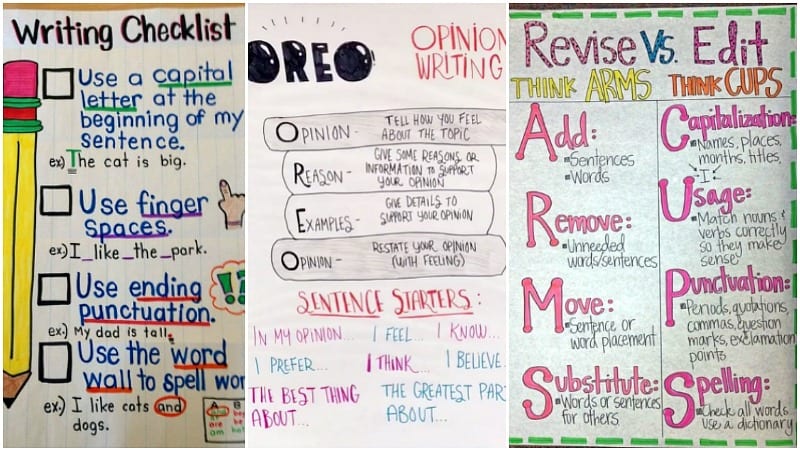 Writing Checklist
Use a capital
letter at the
beginning of my
sentence.
ex) The cat is big.
Use finger
spaces.
ex) I_like_the_park.
Use ending
punctuation.
ex.) My dad is tall.
Use the word
wall to spell wor
ex.) I like cats and
dogs.
OREO!
OPINION
WRITING
OPINION - TELL HOW YOU FEEL
ABOUT THE TOPIC
REASON - GIVE SOME REASONS OR
INFORMATION TO SUPPORT
YOUR OPINION
EXAMPLES - GIVE DETAILS TO
SUPPORT YOUR OPINION
OPINION - RESTATE YOUR OPINION
(WITH FEELING)
SENTENCE STARTERS:
IN MY OPINION... I FEEL... I KNOW...
I PREFER... I THINK... I BELIEVE..
THE BEST THING
ABOUT...
THE GREATEST PAR
ABOUT...
Revise Vs. Edit
THINK ARMS THINK CUPS
Add:
Sentences
Words
Remove:
Unneeded
words/sentences
Move:
Sentence or
word placement
Substitute:
Words or sentences
for others
Capitalization:
Names, places,
months, titles,
I
Usage:
Match nouns &
verbs correctly
so they make
sense
Punctuation:
Periods, quotations,
commas, question
marks, exclamation
points
Spelling:
Check all words
use a dictionary